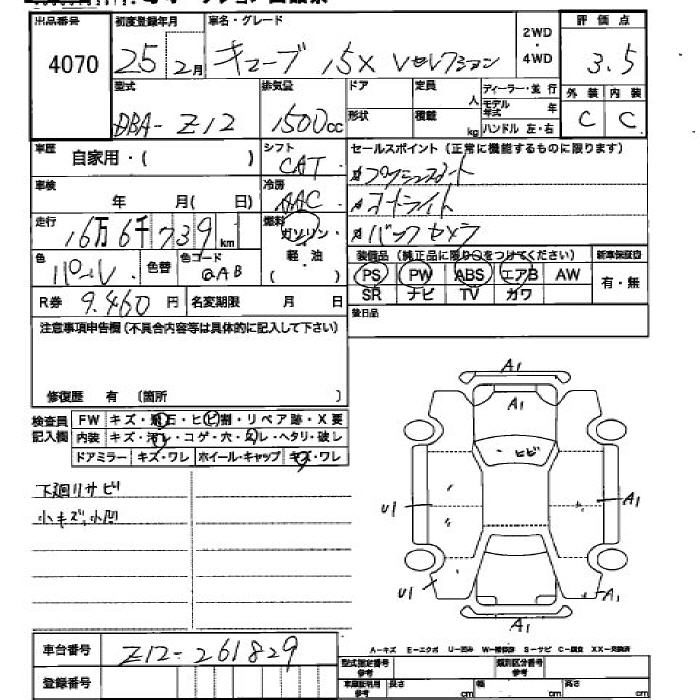 出品番号
4070
初度登録年月
25 2月
車名・グレード
キューブ 15X Vセレクション
2WD
・
4WD
評価点
3.5
外装 内装
C C
型式
DBA- Z12
排気量
1500cc
ドア
形状
定員
人
積載
kg
ディーラー・並行
モデル年式 年
ハンドル 左・右
車歴
自家用・( )
シフト
CAT
セールスポイント (正常に機能するものに限ります)
プッシュスタート
オートライト
バックカメラ
車検
年 月( 日)
冷房
AAC
走行
16万6千739km
燃料
ガソリン・
軽・油
( )
色
パール
色替
色コード
QAB
装備品 (純正品に限り○をつけてください)
PS PW ABS エアB AW
SR ナビ TV カワ
新車保証書
有・無
R券 9.460円
名変期限 月 日
後日品
注意事項申告欄(不具合内容等は具体的に記入して下さい)
修復歴 有 (箇所 )
検査員
記入欄
FW キズ・飛石・ヒビ割・リペア跡・X要
内装 キズ・汚レ・コゲ・穴・スレ・ヘタリ・破レ
ドアミラー キズ・ワレ ホイール・キャップ キズ・ワレ
下廻リサビ
小キズ、小凹
A1
A1
ヒビ
U1
A1
U1
A1
A1
A-キズ E-エクボ U-凹み W-補修跡 S-サビ C-腐食 XX-交換済
車台番号
Z12-261829
登録番号
型式指定番号
参考
類別区分番号
参考
車庫証明用
参考
長さ cm
幅 cm
高さ cm